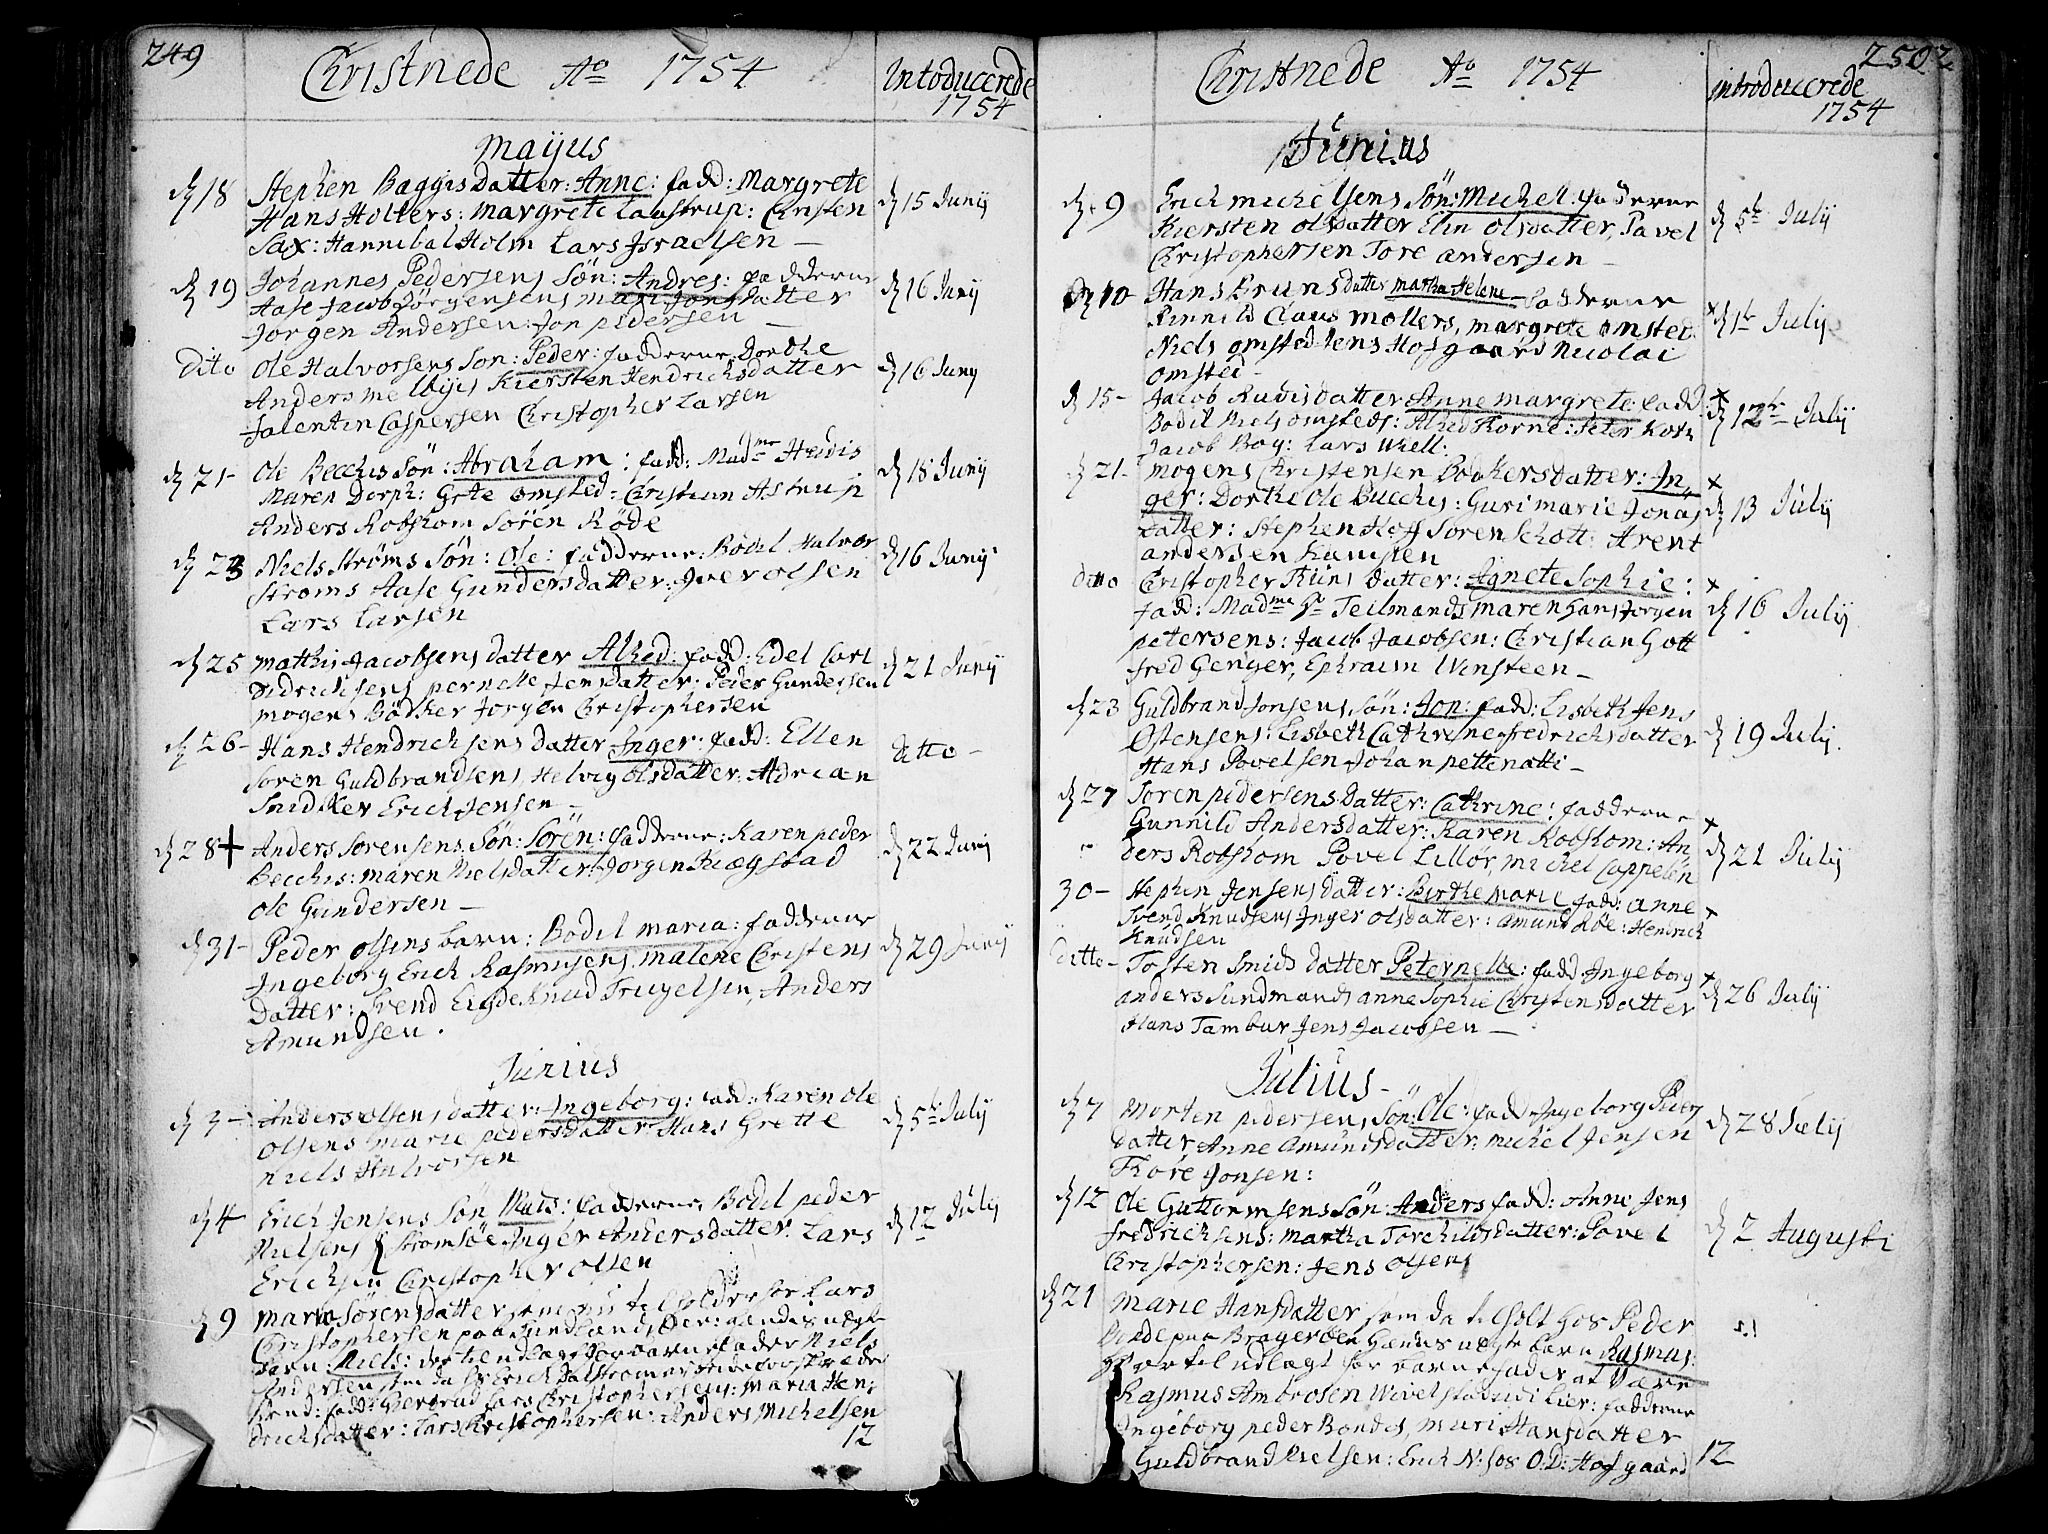 249
Christnede Ao 1754
Introducerede
1754
Maijus
d 18 Stephen Baggis datter: Anne: fadd: Margrete
Hans Holters: Margrete Laustrup: Christen
Sax: Hannibal Holm Lars Israelsen —
d 15 Junij
d 19 Johannes Pedersens Søn: Andres: fadderne
Aase Jacob Jörgensens Mari Jonsdatter
Jorgen Andersen: Jon pedersen —
d 16 Junij
Dito Ole Halvorsens Son: Peder: fadderne Dorthe
Anders Kiersten Hendrichsdatter
Falentin Caspersen Christopher Larsen
d 16 Juny
d 21- Ole Becchis Søn: Abraham: fadd: Madme Heidis
Maren Dorph: Grete Omsted: Christian Astrup
Anders Robshom Sören Röde
d 18 Junij
d 23 Niels Strøms Søn: Ole: fadderne: Bodil Halvor
Stroms Aase Gundersdatter: Iver Olsen
Lars Larsen
d 16 Junij
d 25 Mathis Jacobsens datter Alhed: fadd: Edel Carl
Didrichsens pernelle Jensdatter: Peder Gundersen
Mogens Bödker Jorgen Christophersen
d 21 Junij
d 26- Hans Hendrichsens datter Inger: fadd: Ellen
Soren Guldbrandsens Helvig Olsdatter: Adrian
Snidker Erich Jensen —
ditto -
d 28 + Anders Sorensens Søn: Sören: fadderne: Karen peder
Becchis: Maren Nielsdatter: Jorgen Kiægstad
Ole Gundersen —
d 22 Junij
d 31- Peder Olsens barn: Bodil maria: fadderne
Ingeborg Erich Rasmusens: Malene Christens
Datter: Svend Knud Trugelsen, Anders
Amundsen.
d 29 Junij
Junius
d 3- Anders Olsens datter: Ingeborg: fadd: Karen Ole
Olsens Marie pedersdatter: Hans Grette
Niels Halvorsen
d 5te July
d 4 Erich Jensens Søn Mats: fadderne Bodil peder
Nielsens Stromsöe Inger Andersdatter: Lars
Erichsen Christopher Olsen
d 12 July
d 9 Maria Sörensdatter som nu til holder hos Lars
Christophersen paa Sundland hendes uægte
barn: Niels: der til udlagt for barnefader Niels
Andersen
fadd: Gertrud Lars Christophersens: Maria Hen-
drichsdatter: Lars Christophersen: Anders Michelsen
12
250
Christnede Ao 1754
introducerede
1754
Junius
d. 9 Erich michelsens Søn: Michell: fadderne
Kiersten olsdatter Elin olsdatter, Pavel
Christophersen Tore andersen —
d 5te Julij
d 10 Hans Bruns datter martha Helene fadderne
Rinnild Claus Mollers, margrete omsted
Niels omsted Jens Hofgaard Nicolai
omsted —
x d 1te Julij
d 15- Jacob Rudis datter Anne margrete: fadd
Bodil Niels omsteds: Alhed Thorne: Peter Koch
Jacob Bag: Lars Wiell:
x d 12te Julij
d 21- Mogens Christensen Bödkers datter: In
ger: Dorthe Ole Bucchis: Guri marie Jonas
datter: Stephen Hoff Soren Schott: Arent
andersen Kamsten
x d 13 Julij
ditto Christopher Thüns datter: Agnete Sophie:
fadd: Madme Sl Teilmands maren Hans Jorgen
petersens: Jacob Jacobsen: Christian Gott
fred Genger, Ephraim Winsteen —
x d 16 Julij
d 23 Guldbrand Jonsens Søn: Jon: fadd: Lisbeth Jens
Østensens: Lisbeth Cathrine fredrichsdatter
Hans Povelsen Johan pettenatti —
d 19 Julij.
d 27 Soren pedersens datter: Cathrine: fadderne
Gunnild Andersdatter: Karen Robshom: An
ders Robshom Povel Lillör, Michel Cappelen
x d 21 Julij
30- Stephen Jensens datter: Birthe Marie fadd: anne
Svend Knudsens Inger Olsdatter: Amund Röe: Hendrich
Knudsen
x
ditto- Tosten Smids datter Peternelle: fadd Ingeborg
anders Sundmands anne Sophie Christensdatter
Hans Tambur Jens Jacobsen —
x d 26 Julij
Julius -
d 7 Morten pedersens Søn: Ole: fadd: Ingeborg Peders
datter Anne Amundsdatter: Michel Jensen
Thore Jonsen:
d 28 Julij
d 12 Ole Guttormsens Søn: Anders fadd: Anne Jens
fredrichsens: Martha Torchildsdatter: Povel
Christophersen: Jens Olsens
d 2 Augusti
d 21 Marie Hansdatter som da tilholt hos Peder
Bonde paa Bragernæs hendes uægte barn Rasmus:
hvor til udlagt for barnefader at være
Rasmus Ambrosen Wivelstad i Lier: fadderne
Ingeborg peder Bondes, Mari Hansdatter
Guldbrand Nielsen: Erich N: hos O:D: Hofgaard
12